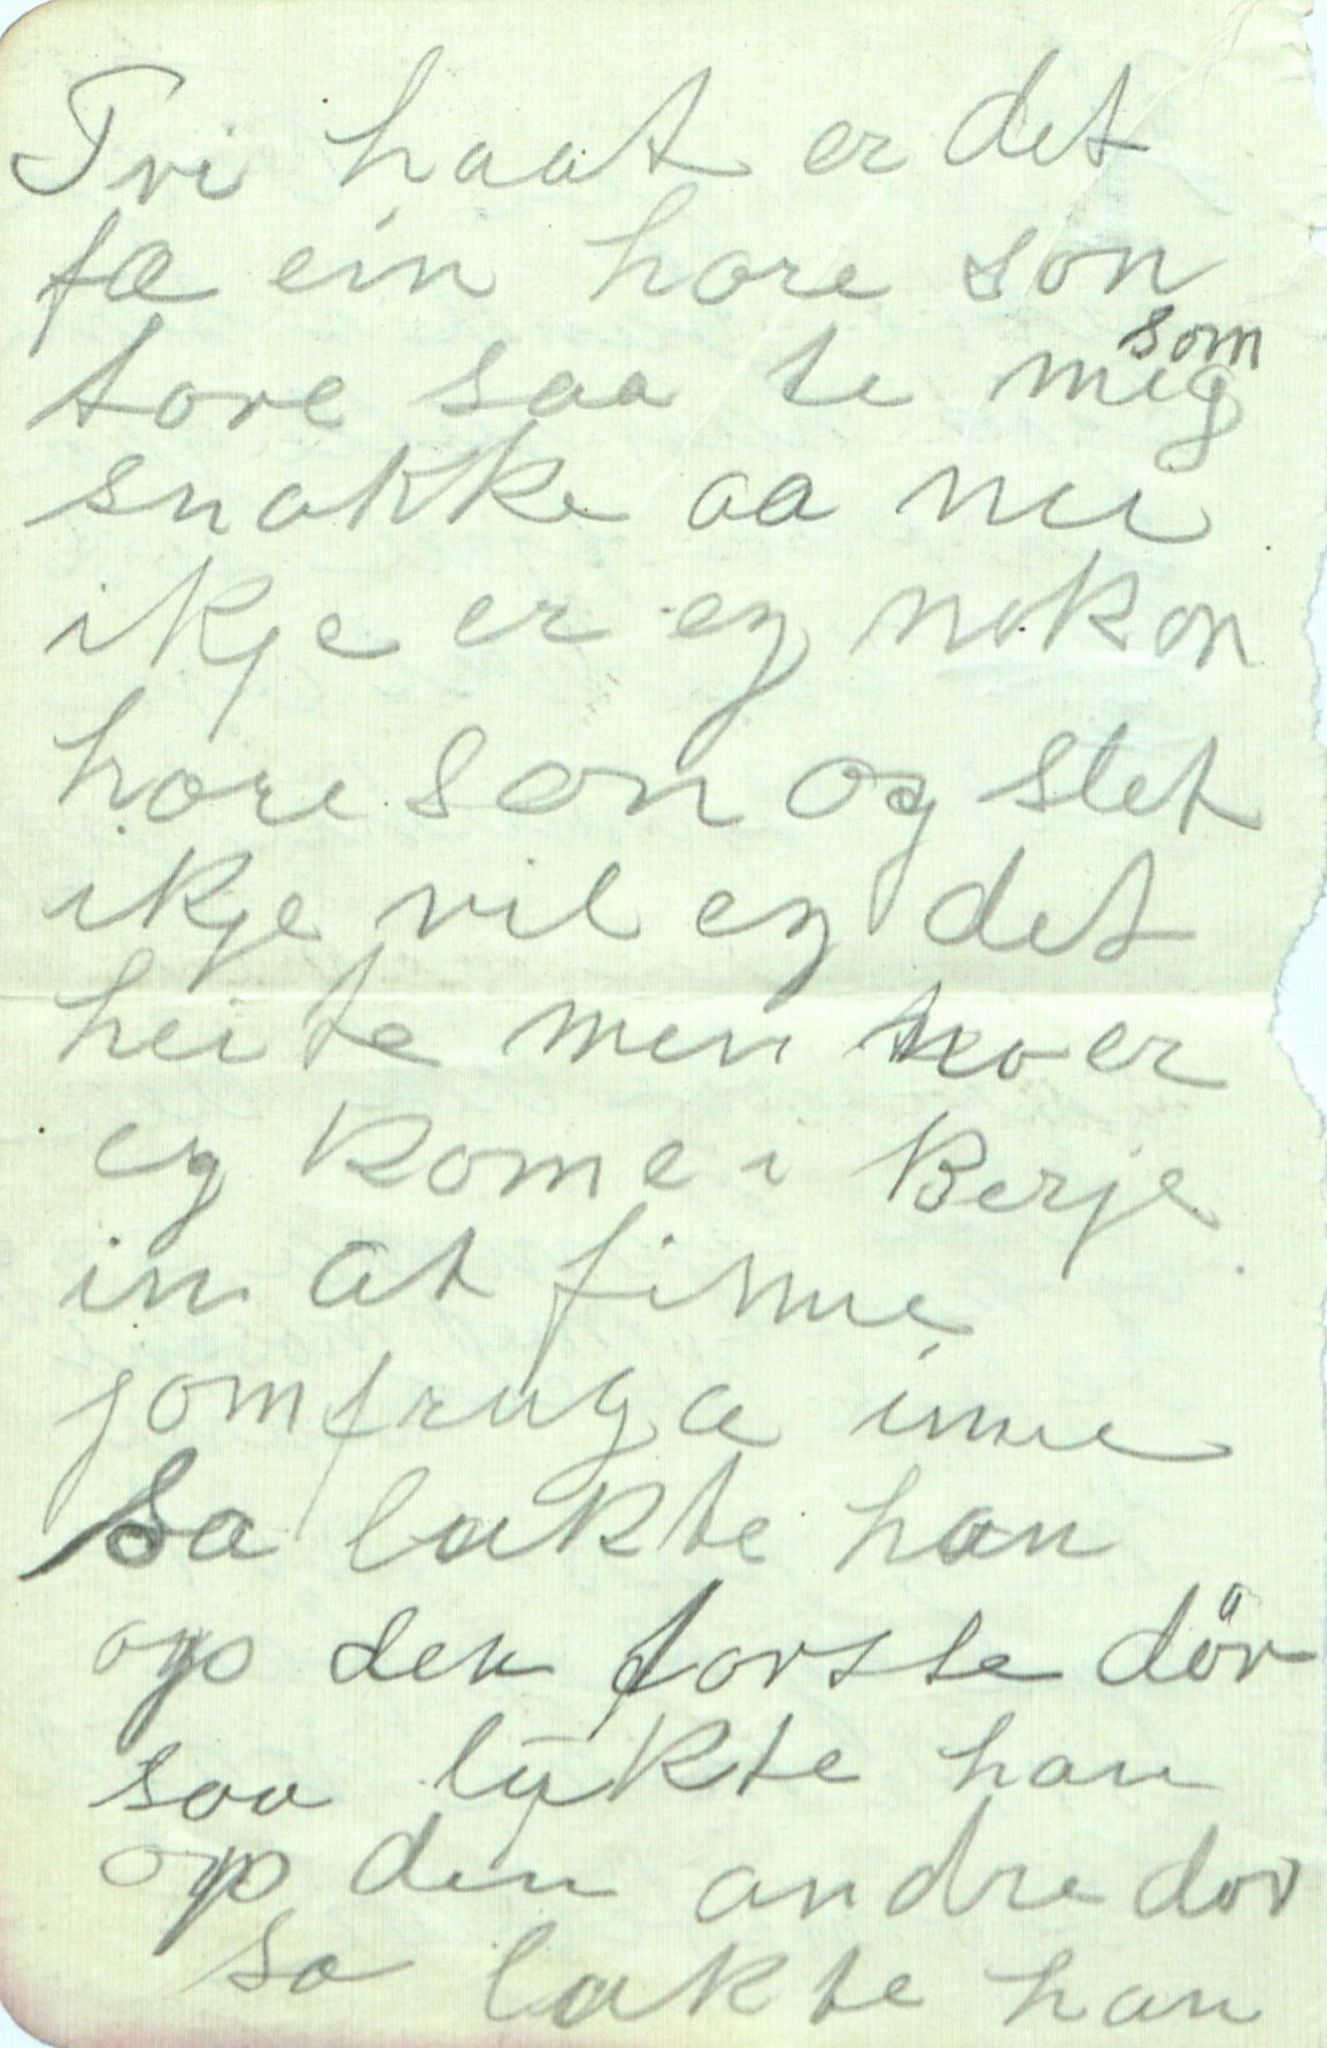 Tvi haat er det
fæ ein hore son
tore saa te meg som
snakke aa nei
ikje er eg nokon
hore son og slet
ikje vil eg det
heite men no er
eg kome i Berje
in at finne
jomfruga inne
Sa lukte han
op den forste dör
saa lukte han
op den andre dor
sa lukte han